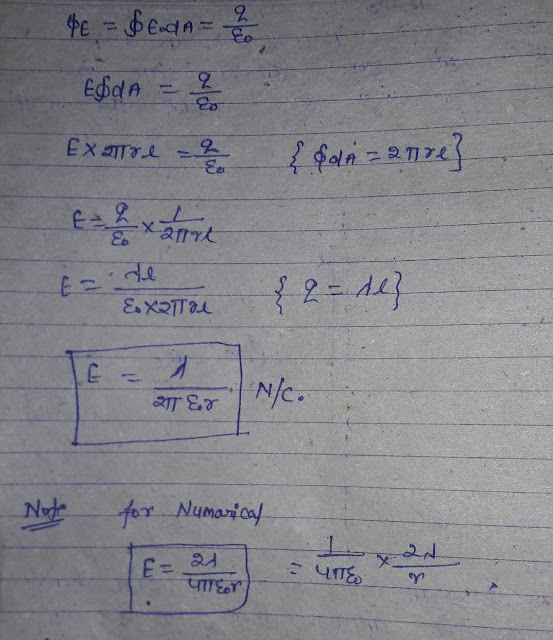 ϕE = ∮E.dA = q/ε₀
E∮dA = q/ε₀
E×2πrl = q/ε₀ { ∮dA = 2πrl}
E = q/ε₀ × 1/2πrl
E = λl/ε₀×2πrl { q = λl}
E = λ/2πε₀r N/C.
Note for Numarical
E = 2λ/4πε₀r = 1/4πε₀ × 2λ/r .